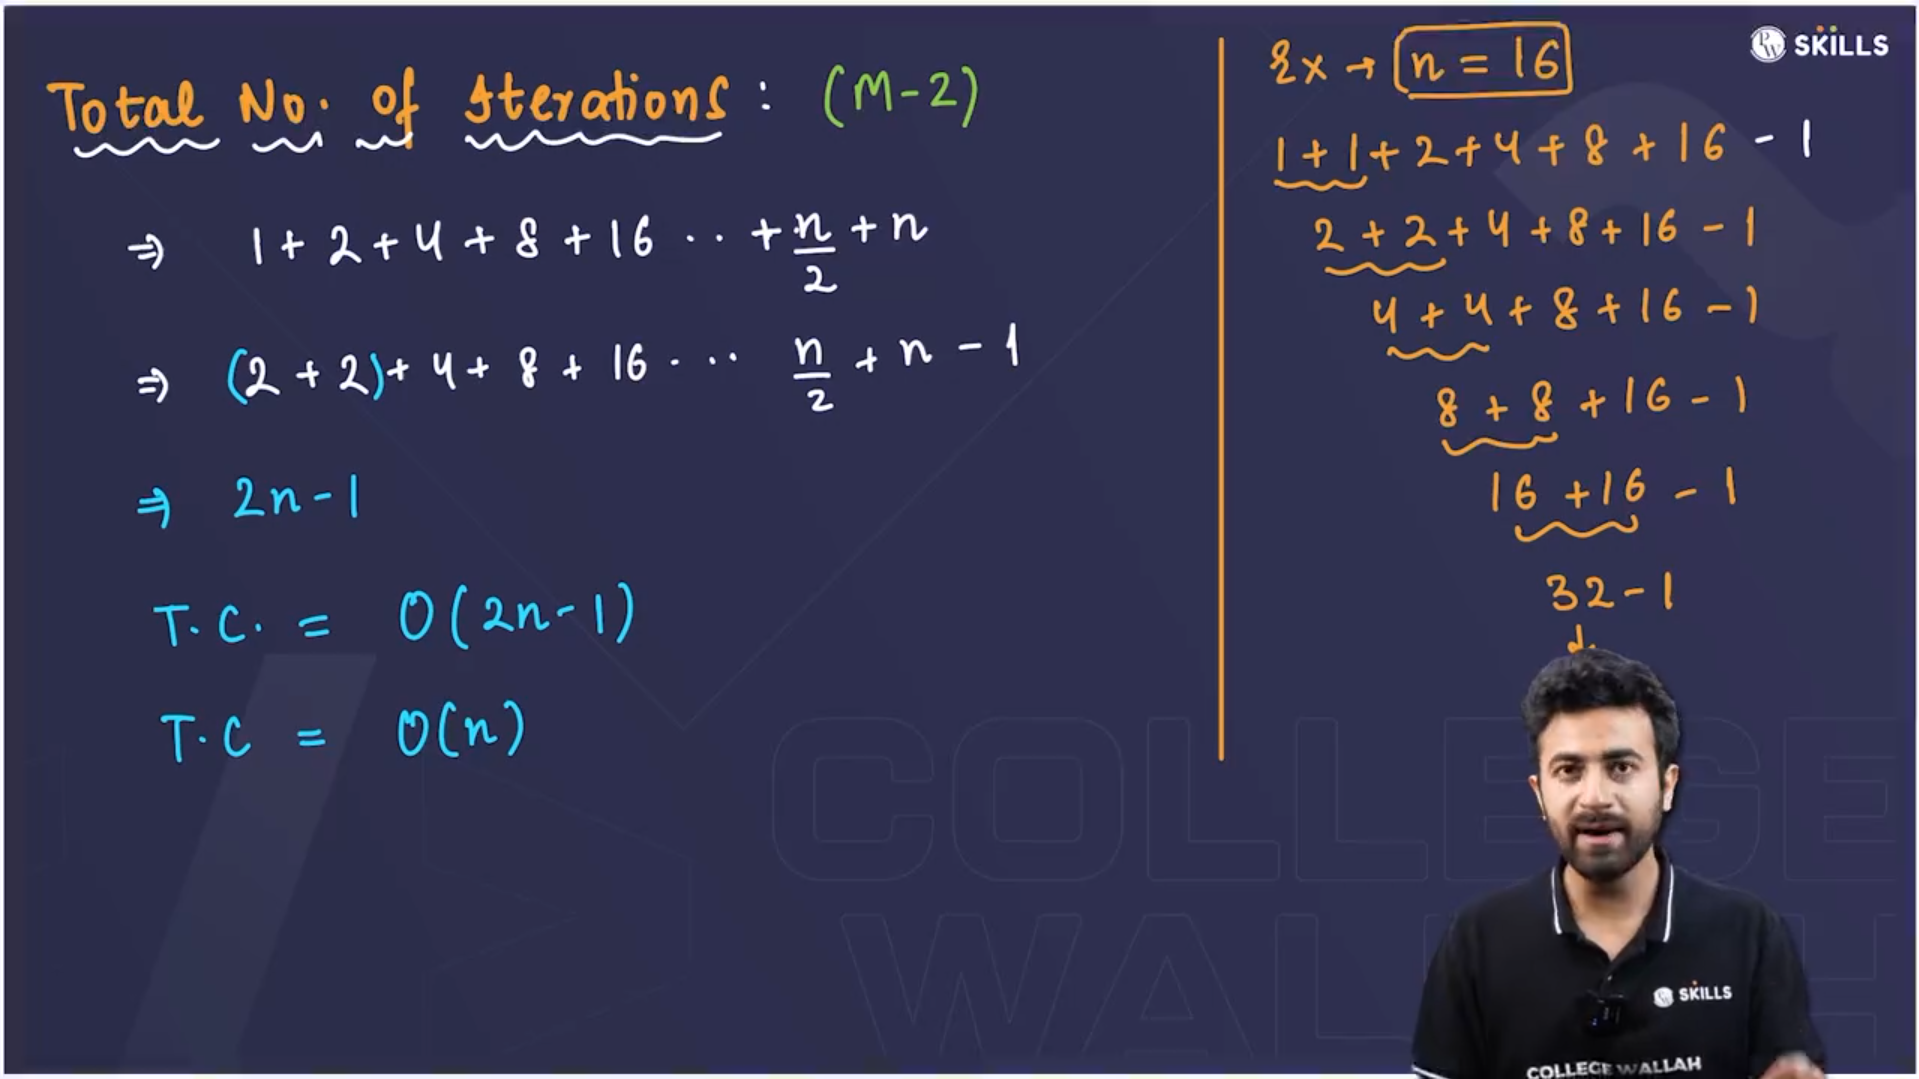 Total No. of Iterations : (M-2)
⇒ 1 + 2 + 4 + 8 + 16 .. + n/2 + n
⇒ (2 + 2) + 4 + 8 + 16 . ... n/2 + n - 1
⇒ 2n - 1
T.C. = O(2n-1)
T.C = O(n)
Ex → n = 16
1 + 1 + 2 + 4 + 8 + 16 - 1
2 + 2 + 4 + 8 + 16 - 1
4 + 4 + 8 + 16 - 1
8 + 8 + 16 - 1
16 + 16 - 1
32 - 1
PW SKILLS
COLLEGE
WALLAH
PW SKILLS
COLLEGE WALLAH